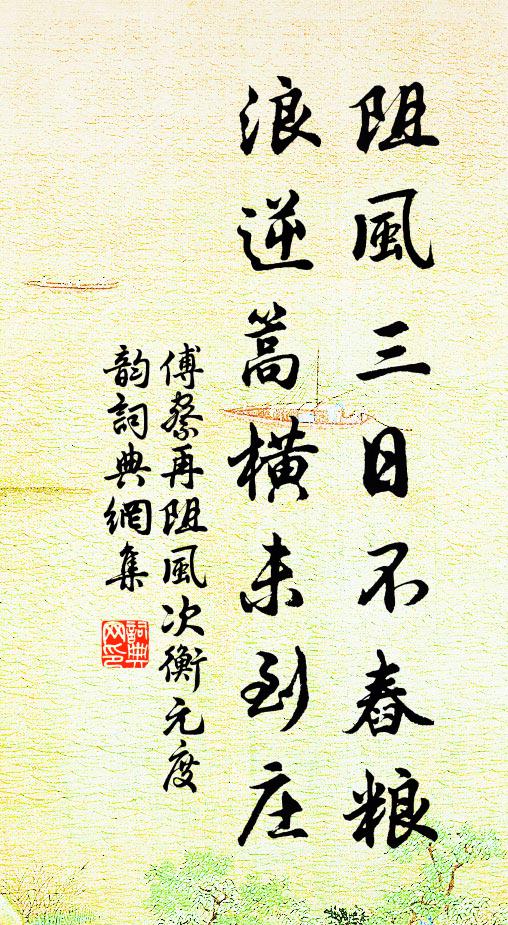 阻風三日不舂粮
浪逆篙橫未到庄
傅察再阻風次衡元度
韵詞典網集
詞典网印